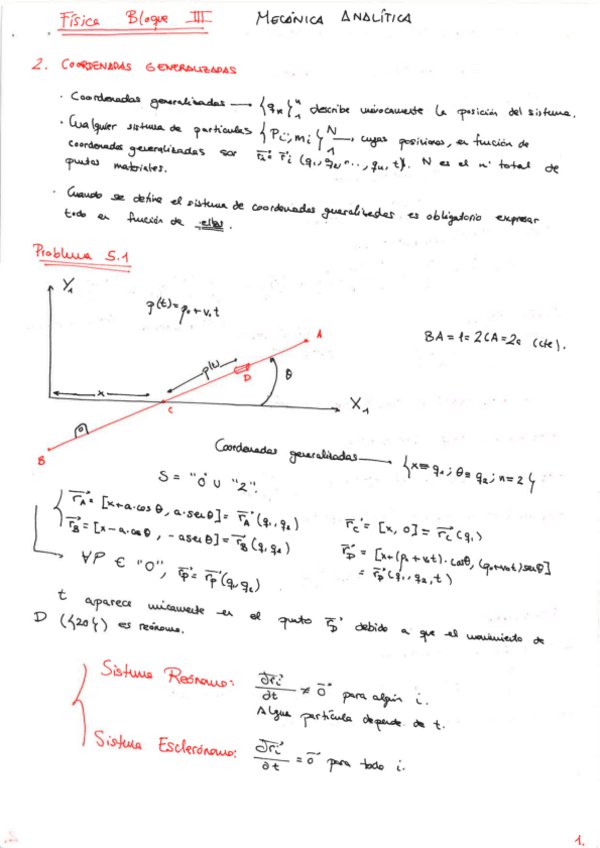 Física Bloque III MECÁNICA ANALÍTICA
2. COORDENADAS GENERALIZADAS
· Coordenadas generalizadas → {qk}1^n describe unívocamente la posición del sistema.
· Cualquier sistema de partículas {Pi; mi}1^N, cuyas posiciones, en función de
coordenadas generalizadas son ri = ri (q1, q2, ..., qn, t). N es el nº total de
puntos materiales.
· Cuando se define el sistema de coordenadas generalizadas es obligatorio expresar
todo en función de ellas.
Problema 5.1
Y1
ρ(t)=ρ0+v0t
A
BA = l = 2CA = 2a (cte).
ρ(t)
D
θ
x
X1
C
B
Coordenadas generalizadas → {x = q1; θ = q2; n = 2}
S = "0" ∪ "2".
rA = [x+a·cosθ, a·senθ] = rA (q1, q2)
rB = [x-a·cosθ, -a senθ] = rB (q1, q2)
rC = [x, 0] = rC (q1)
rD = [x+(ρ0+v0t)·cosθ, (ρ0+v0t)senθ]
= rD (q1, q2, t)
∀P ∈ "0", rP = rP (q1, q2)
t aparece únicamente en el punto rD debido a que el movimiento de
D ({20}) es reónomo.
Sistema Reónomo: ∂ri/∂t ≠ 0 para algún i.
Alguna partícula depende de t.
Sistema Esclerónomo: ∂ri/∂t = 0 para todo i.
1.